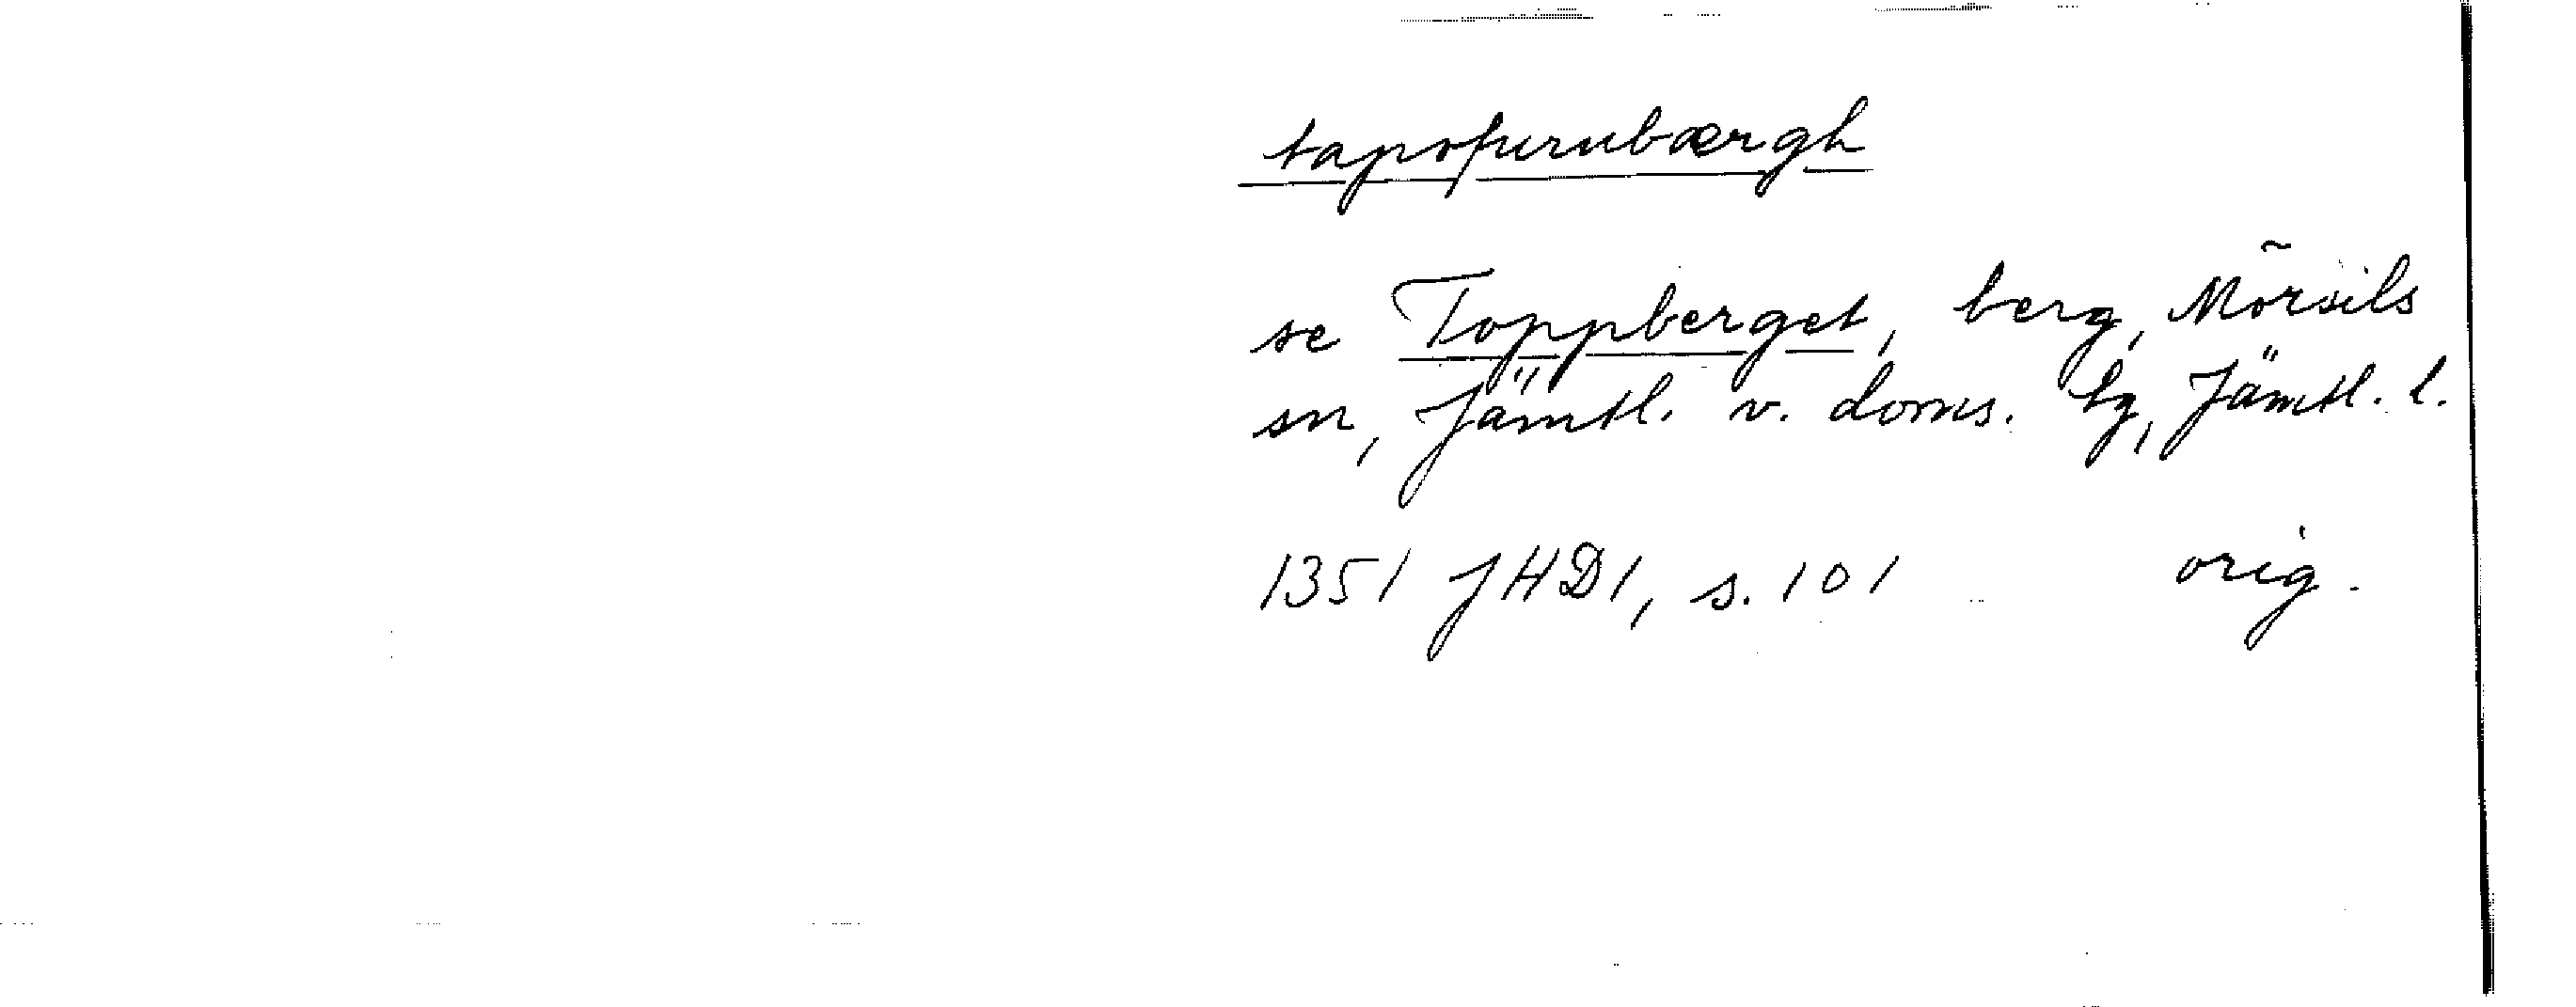 tapofurubærgh
se Toppberget, berg, Mörsils
sn, Jämtl. v. doms. tg, Jämtl. l.
1351 JHD1, s. 101 orig.